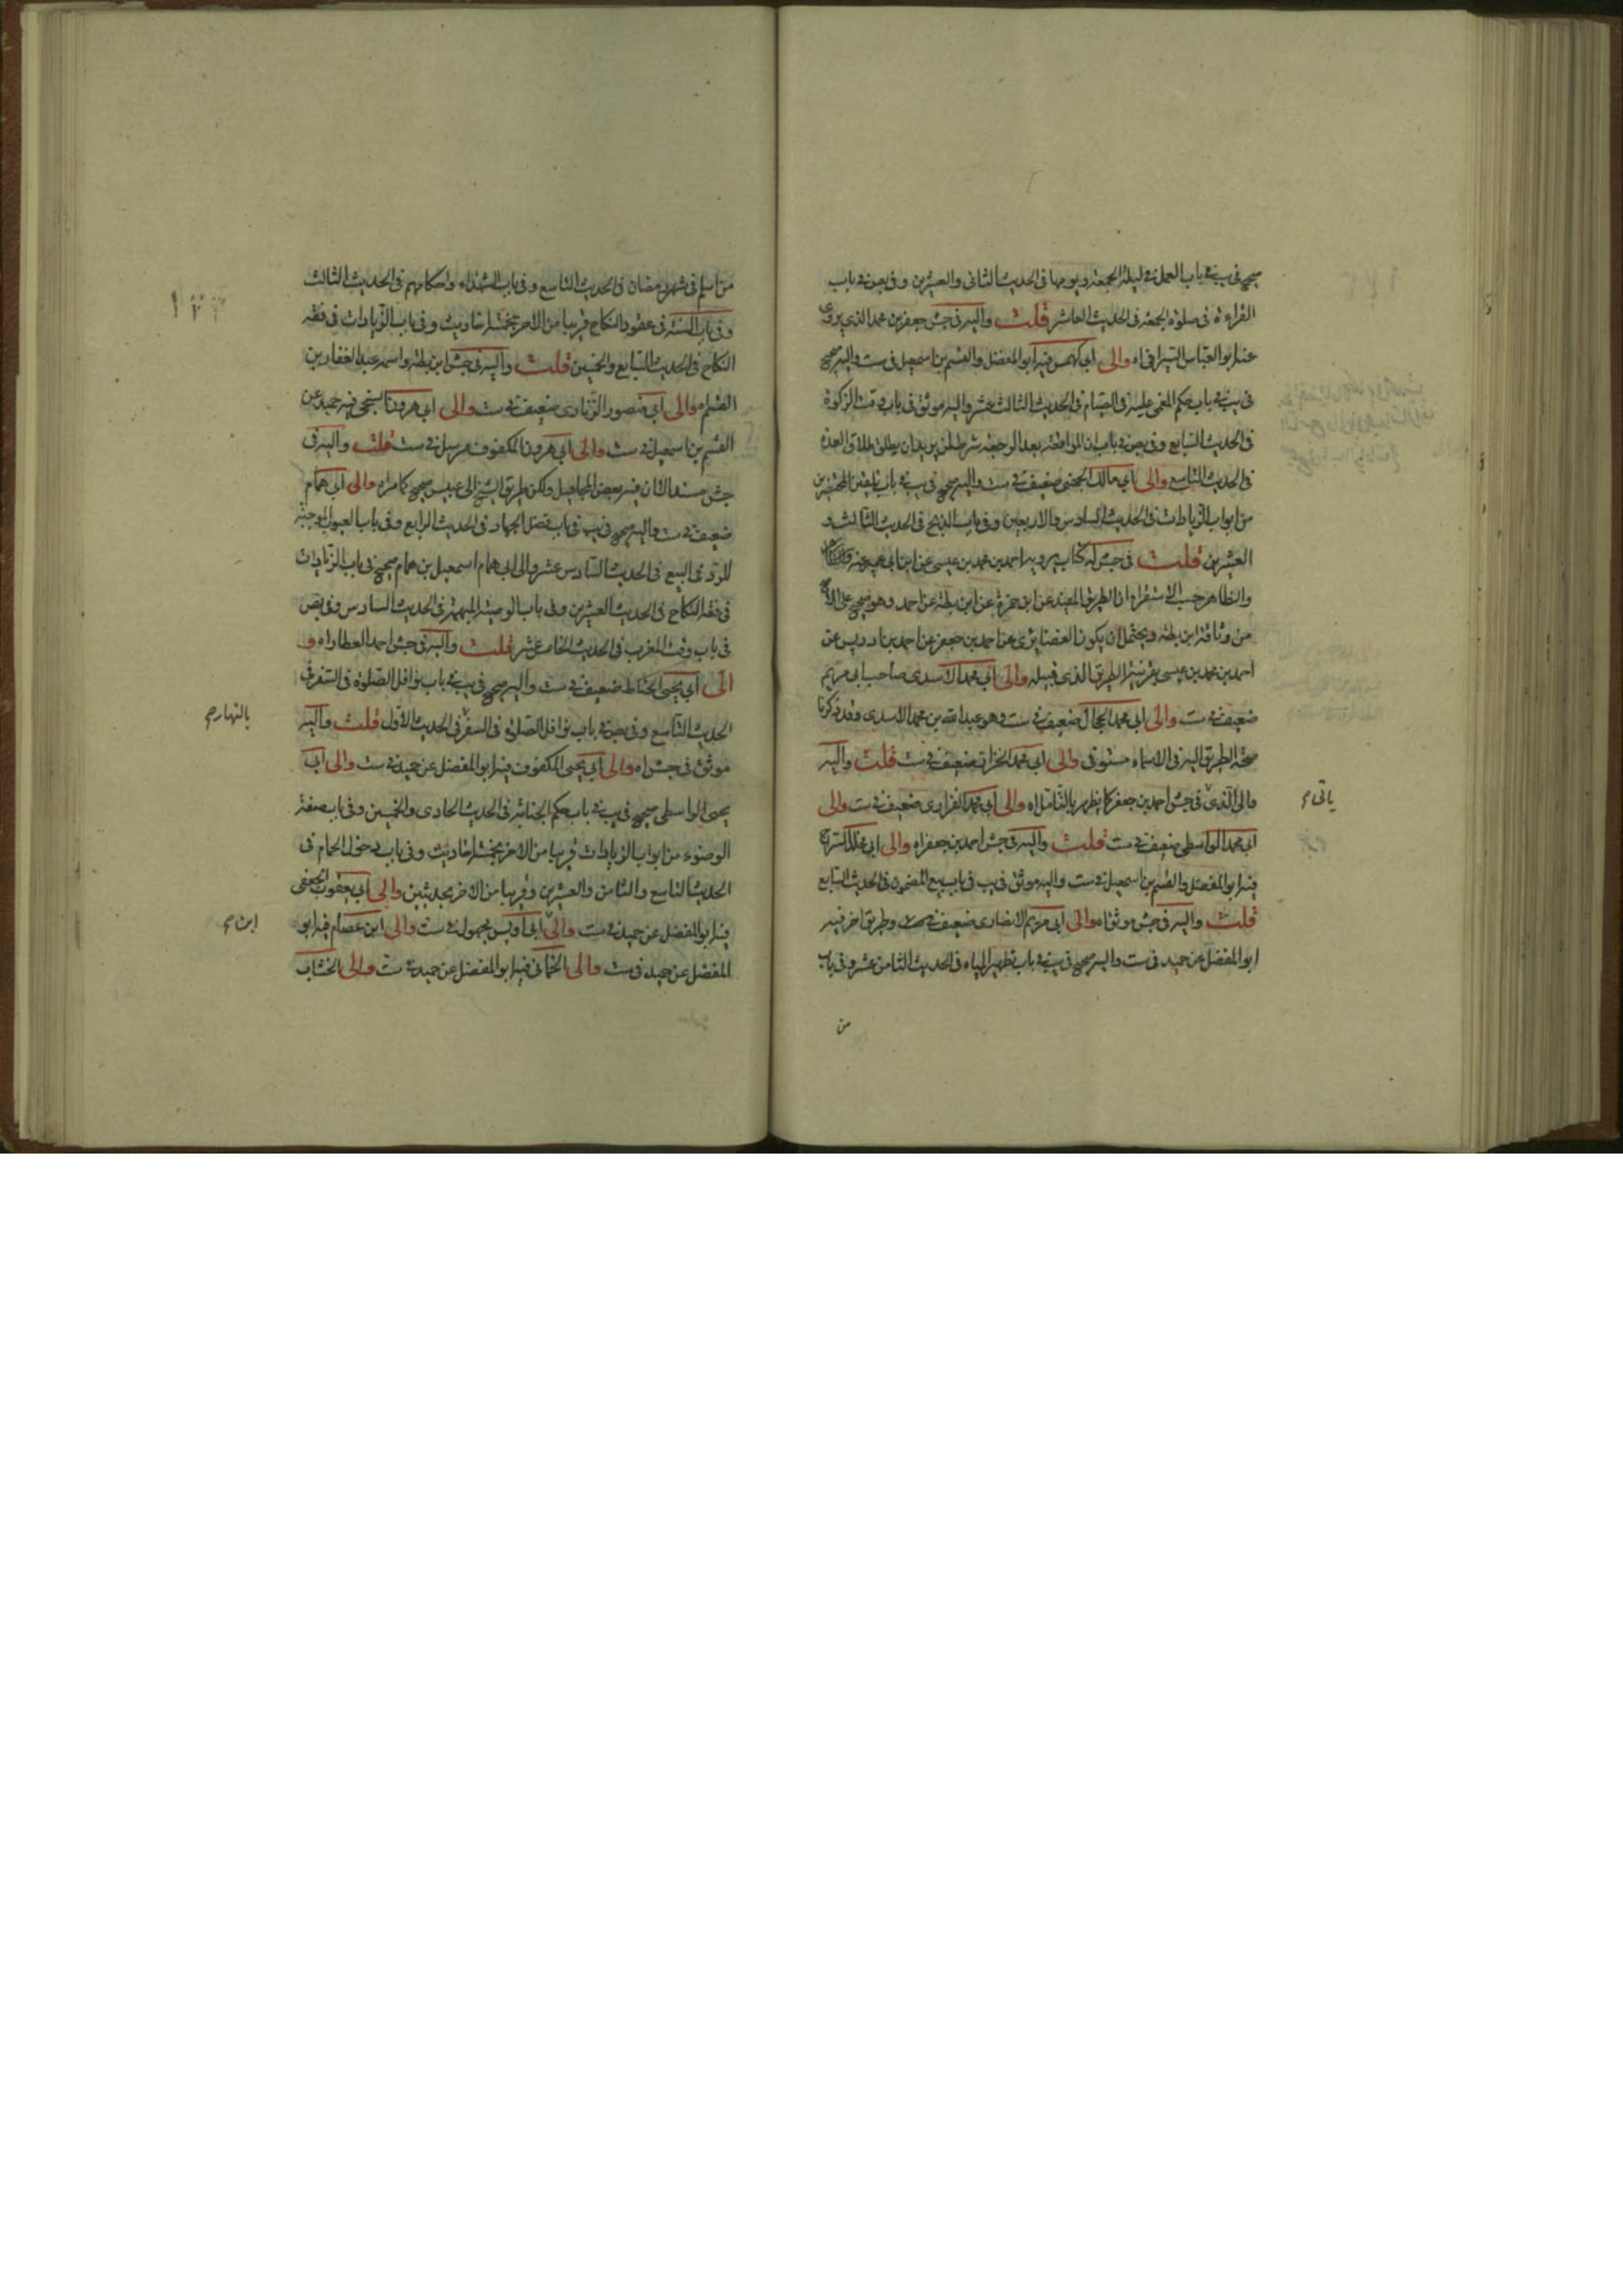 صحيح في يب في باب العمل في ليلة الجمعة ويومها في الحديث الثاني والعشرين وفي بص في باب
القراءة في صلوة الجمعة في الحديث العاشر قلت واليه في جش جعفر بن محمد الذي يروى
عنه ابو العباس السيرافي اه والى ابي كهمس فيه ابو المفضل والقسم بن اسمعيل في ست واليه صحيح
في يب في باب حكم المغمى عليه في الصيام في الحديث الثالث عشر واليه موثق في باب وقت الزكوة
في الحديث السابع وفي بص في باب ان المواقعة بعد الرجعة شرط لمن يريد ان يطلق طلاق العدة
في الحديث التاسع والى ابي مالك الجهني ضعيف في ست واليه صحيح في يب في باب تلقين المحتضرين
من ابواب الزيادات في الحديث السادس والاربعين وفي باب الذبح في الحديث الثالث و
العشرين قلت في جش له كتاب يرويه احمد بن محمد بن عيسى عن ابن ابي عمير عنه
والظاهر حسب الاستقراء ان الطريق المفيد عن ابن حمزة عن ابن بطة عن احمد وهو صحيح على الاصح
من وثاقة ابن بطة ويحتمل ان يكون الغضايرى عن احمد بن جعفر عن احمد بن ادريس عن
احمد بن محمد بن عيسى بقرينة الطريق الذي قبيله والى ابي محمد الاسدى صاحب ابي مريم
ضعيف في ست والى ابي محمد الحجال ضعيف في ست وهو عبد الله بن محمد الاسدى وقد ذكرنا
صحة الطريق اليه في الاسماء والى ابي محمد الخزاز ضعيف في ست قلت واليه
والى الذي في جش احمد بن جعفر كما يظهر بالتامل اه والى ابي محمد الفزارى ضعيف في ست والى
ابي محمد الواسطى ضعيف في ست قلت واليه في جش احمد بن جعفر اه والى ابي مخلد السراج
فيه ابو المفضل والقسم بن اسمعيل في ست واليه موثق في يب في باب بيع المضمون في الحديث السابع
قلت واليه في جش موثق اه والى ابي مريم الانصارى ضعيف في ست وطريق اخر فيه
ابو المفضل عن حميد في ست واليه صحيح في يب في باب تطهير المياه في الحديث الثامن عشر وفي باب
من
ياتى م
من اسلم في شهر رمضان في الحديث التاسع وفي باب الشهداء واحكامهم في الحديث الثالث
وفي باب السنة في عقود النكاح قريبا من الاخر بخمسة احاديث وفي باب الزيادات في فقه
النكاح في الحديث السابع والخمسين قلت واليه في جش ابن بطة واسمه عبد الغفار بن
القسم اه والى ابي منصور الزيادى ضعيف في ست والى ابي هرون السنجى فيه حميد عن
القسم بن اسمعيل في ست والى ابي هرون المكفوف مرسل في ست قلت واليه في
جش مسندا لان فيه بعض المجاهيل ولكن طريق الشيخ الى عبيس صحيح كما مر اه والى ابي همام
ضعيف في ست واليه صحيح في يب في باب فضل الجهاد في الحديث الرابع وفي باب العيوب الموجبة
للرد في البيع في الحديث السادس عشر والى ابي همام اسمعيل بن همام صحيح في باب الزيادات
في فقه النكاح في الحديث العشرين وفي باب الوصية المبهمة في الحديث السادس وفي بص
في باب وقت المغرب في الحديث الخامس عشر قلت واليه في جش احمد العطار اه و
الى ابي يحيى الحناط ضعيف في ست واليه صحيح في يب في باب نوافل الصلوة في السفر في
الحديث التاسع وفي بص في باب نوافل الصلوة في السفر في الحديث الاول قلت واليه
موثق في جش اه والى ابي يحيى المكفوف فيه ابو المفضل عن حميد في ست والى ابي
يحيى الواسطى صحيح في يب في باب حكم الجنابة في الحديث الحادى والخمسين وفي باب صفة
الوضوء من ابواب الزيادات قريبا من الاخر بخمسة احاديث وفي باب دخول الحمام في
الحديث التاسع والثامن والعشرين وقريبا من الاخر بحديثين والى ابي يعقوب الجعفى
فيه ابو المفضل عن حميد في ست والى ابي اويس مجهول في ست والى ابن عصام فيه ابو
المفضل عن حميد في ست والى الحمانى فيه ابو المفضل عن حميد في ست والى الخشاب
بالنهار صح
ابن م